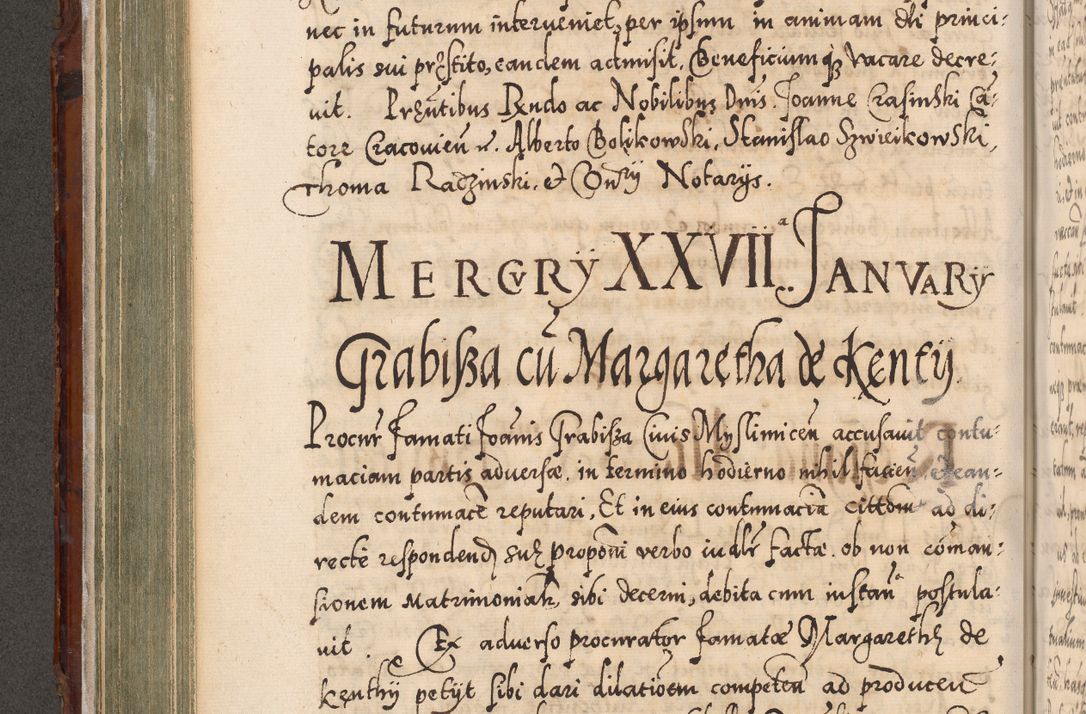 nec in futurum interveniet, per ipsum in animam dni princi-
palis sui præstito, eandem admisit. Beneficiumq; vacare decre-
vit. Prȩntibus Rndo ac Nobilibus Dnis. Joanne Crasinski Can-
tore Cracovien. Alberto Bolikowski, Stanislao Szwieikowski,
Thoma Radzinski, et Notarijs.
MERCVRÿ XXVIIa. JANVARÿ
Grabissa cū Margaretha de Kęntÿ.
Procur Famati Joānis Grabissa Civis Myslimicen accusavit contu-
maciam partis adversæ. in termino hodierno nihil facien et ean-
dem contumacē reputari, Et in eius contumaciā cittōm ad di-
recte respondend suȩ proponi verbo iudlr factæ ob non cōman-
sionem matrimonialē, sibi decerni, debita cum instan postula-
vit. Ex adverso procurator Famatæ Margarethȩ de
Kęnthÿ petÿt sibi dari dilationem competen ad producen